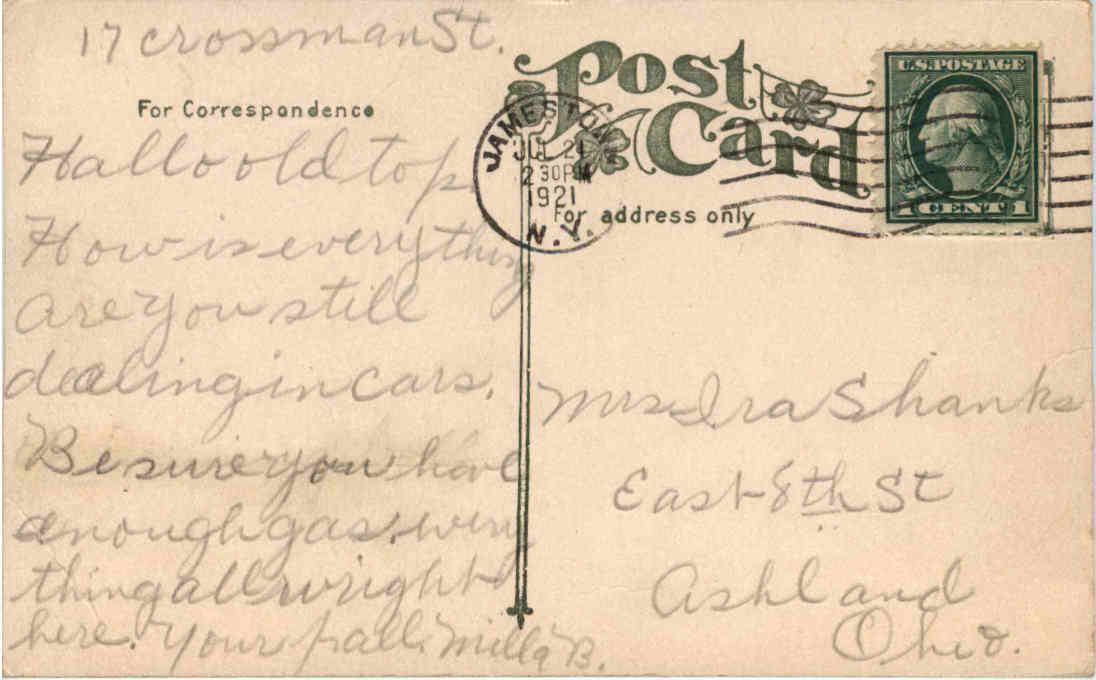 17 Crossman St.
For Correspondence
Hallo old top.
How is everything
are you still
dealing in cars.
Be sure you have
enough gas. every
thing all wright
here. Your pall. Milla B.
Post
Card
JAMESTOWN
2 30 PM
1921
N.Y.
For address only
U.S. POSTAGE
1 CENT 1
Mrs Ira Shanks
East 8th St
Ashland
Ohio.